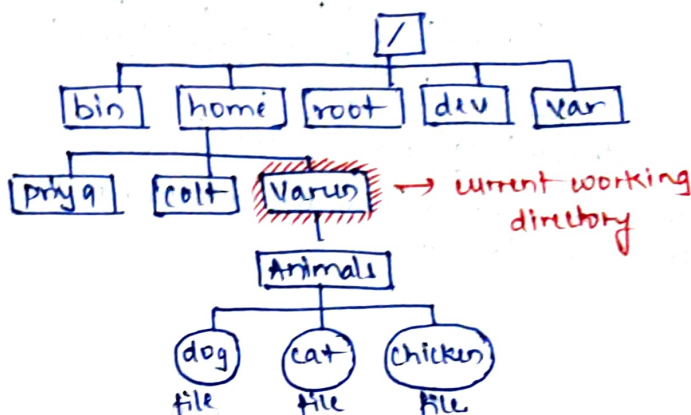 /
bin home root dev var
priya colt Varun → current working
directory
Animals
dog cat chicken
file file file